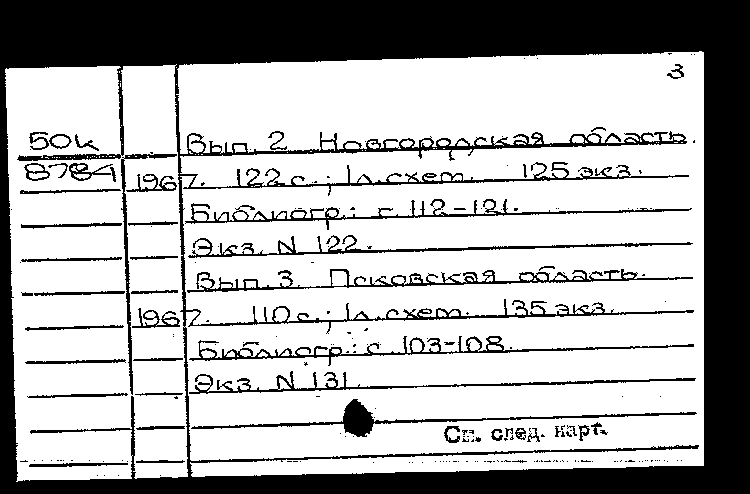 3
50к Вып. 2 Новгородская область.
8784 1967. 122 с.; 1 л. схем. 125 экз.
Библиогр.: с. 112-121.
Экз. N 122.
Вып. 3. Псковская область.
1967. 110 с.; 1 л. схем. 135 экз.
Библиогр.: с. 103-108.
Экз. N 131.
См. след. карт.